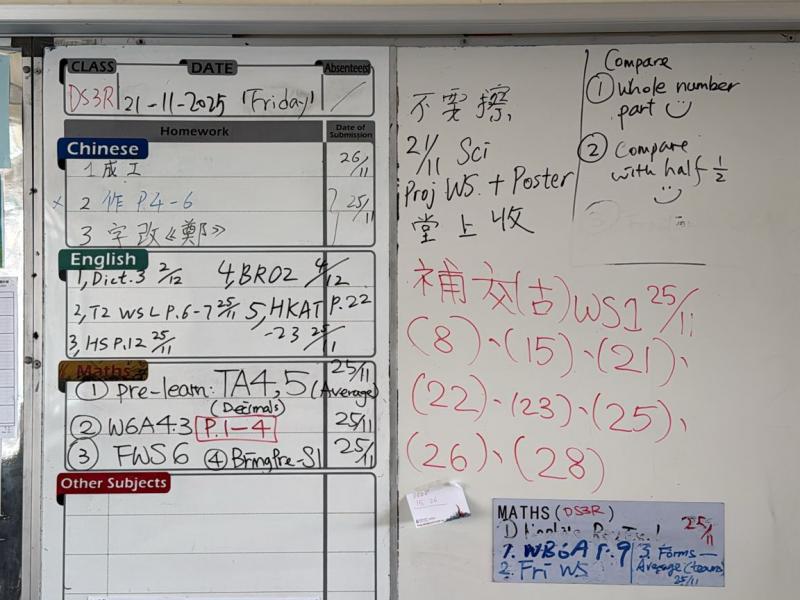 CLASS DATE Absentees
DS3R 21-11-2025 (Friday) /
Homework Date of Submission
Chinese
1 成工 26/11
x 2 作 P.4-6 25/11
3 字改《鄭》
English
1, Dict.3 2/12 4, BR02 4/12
2, T2 WS L P.6-7 25/11 5, HKAT P.22
-23 25/11
3, HS P.12 25/11
Maths
① pre-learn: TA4, 5 (Average) 25/11
(Decimals)
② W6A4.3 P.1-4 25/11
③ FWS6 ④ Bring Pre-S1 25/11
Other Subjects
不要擦
21/11 Sci
Proj WS. + Poster
堂上收
Compare
① Whole number
part
② Compare
with half 1/2
補交(古)WS1 25/11
(8)、(15)、(21)、
(22)、(23)、(25)、
(26)、(28)
MATHS (DS3R)
25/11
1. WB6A P.9
2. Fri WS
3. Forms —
Average (teams)
25/11